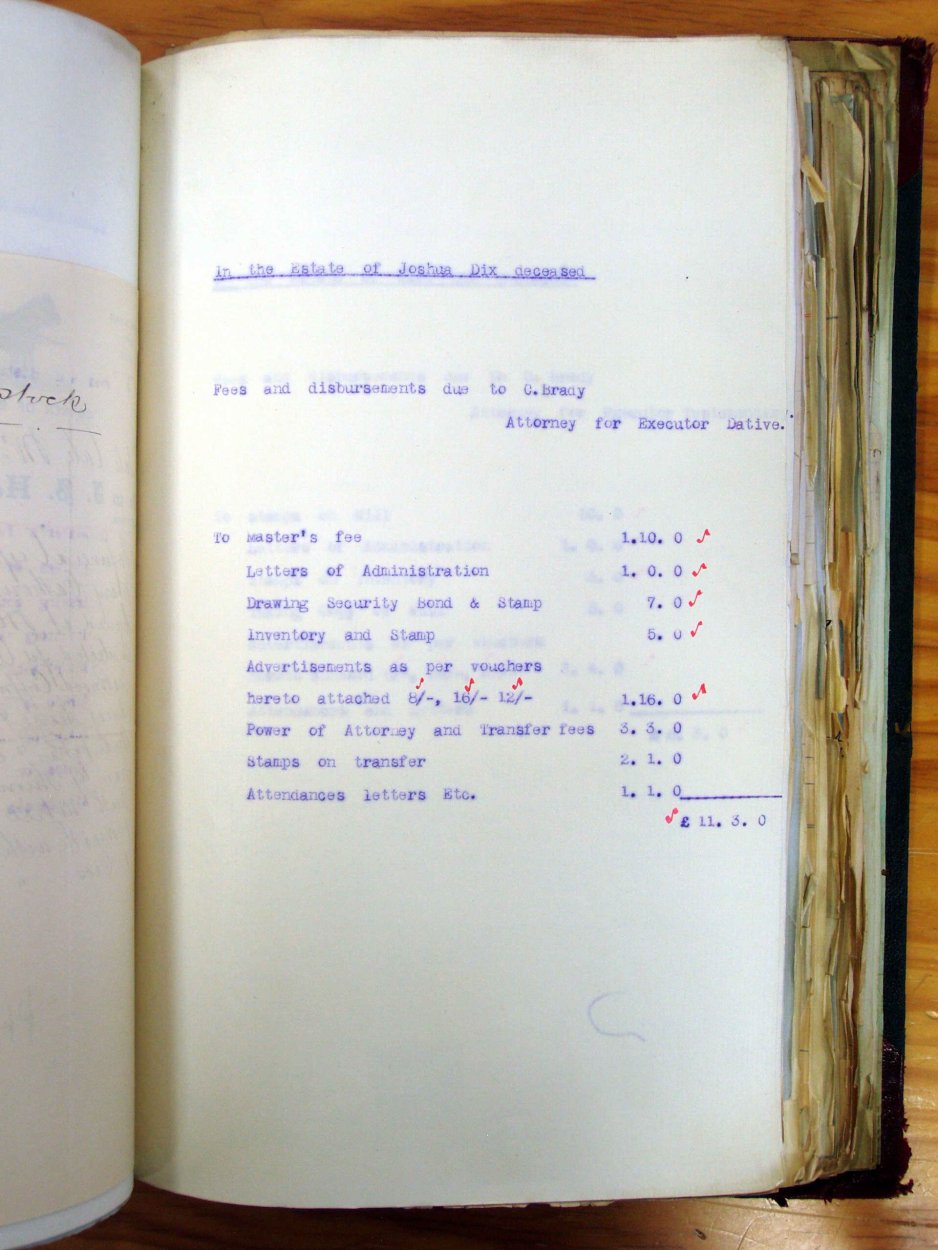 stock
In the Estate of Joshua Dix deceased
Fees and disbursements due to C.Brady
Attorney for Executor Dative.
To Master's fee 1.10. 0
Letters of Administration 1. 0. 0
Drawing Security Bond & Stamp 7. 0
Inventory and Stamp 5. 0
Advertisements as per vouchers
hereto attached 8/-, 16/- 12/- 1.16. 0
Power of Attorney and Transfer fees 3. 3. 0
Stamps on transfer 2. 1. 0
Attendances letters Etc. 1. 1. 0
£ 11. 3. 0